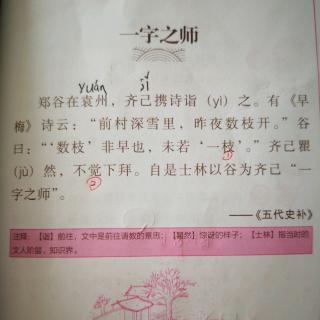 一字之师
yuán
sì
郑谷在袁州，齐己携诗诣（yì）之。有《早
梅》诗云：“前村深雪里，昨夜数枝开。”谷
曰：“‘数枝’非早也，未若‘一枝’。”齐己瞿
①
（jù）然，不觉下拜。自是士林以谷为齐己“一
②
字师”。
——《五代史补》
注释：【诣】前往，文中是前往请教的意思；【瞿然】惊讶的样子；【士林】指当时的
文人阶层，知识界。